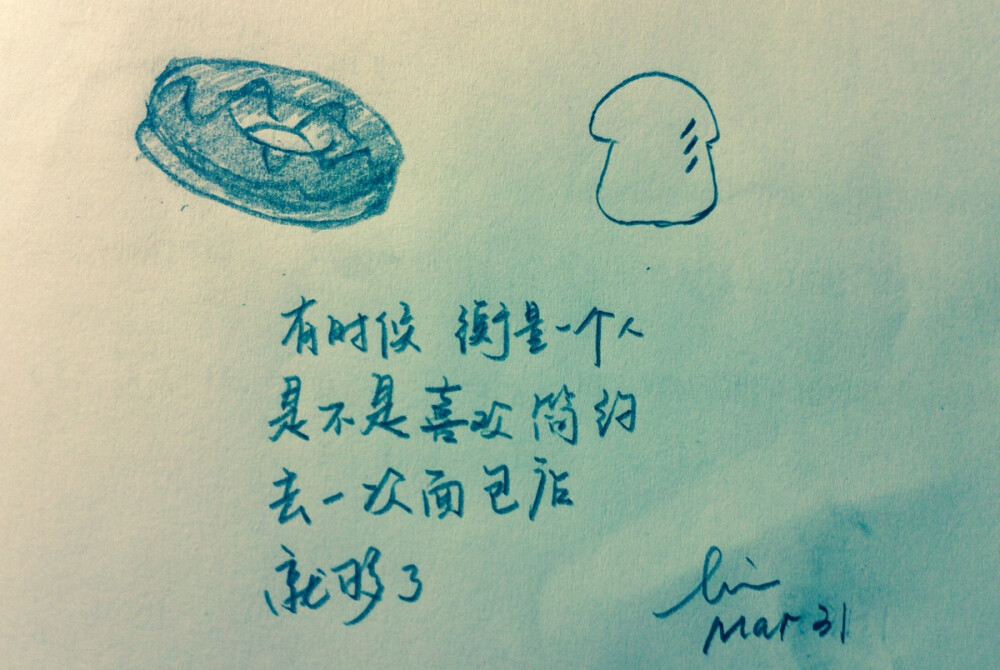 有时候 衡量一个人
是不是喜欢简约
去一次面包店
就够了
lin
Mar 31